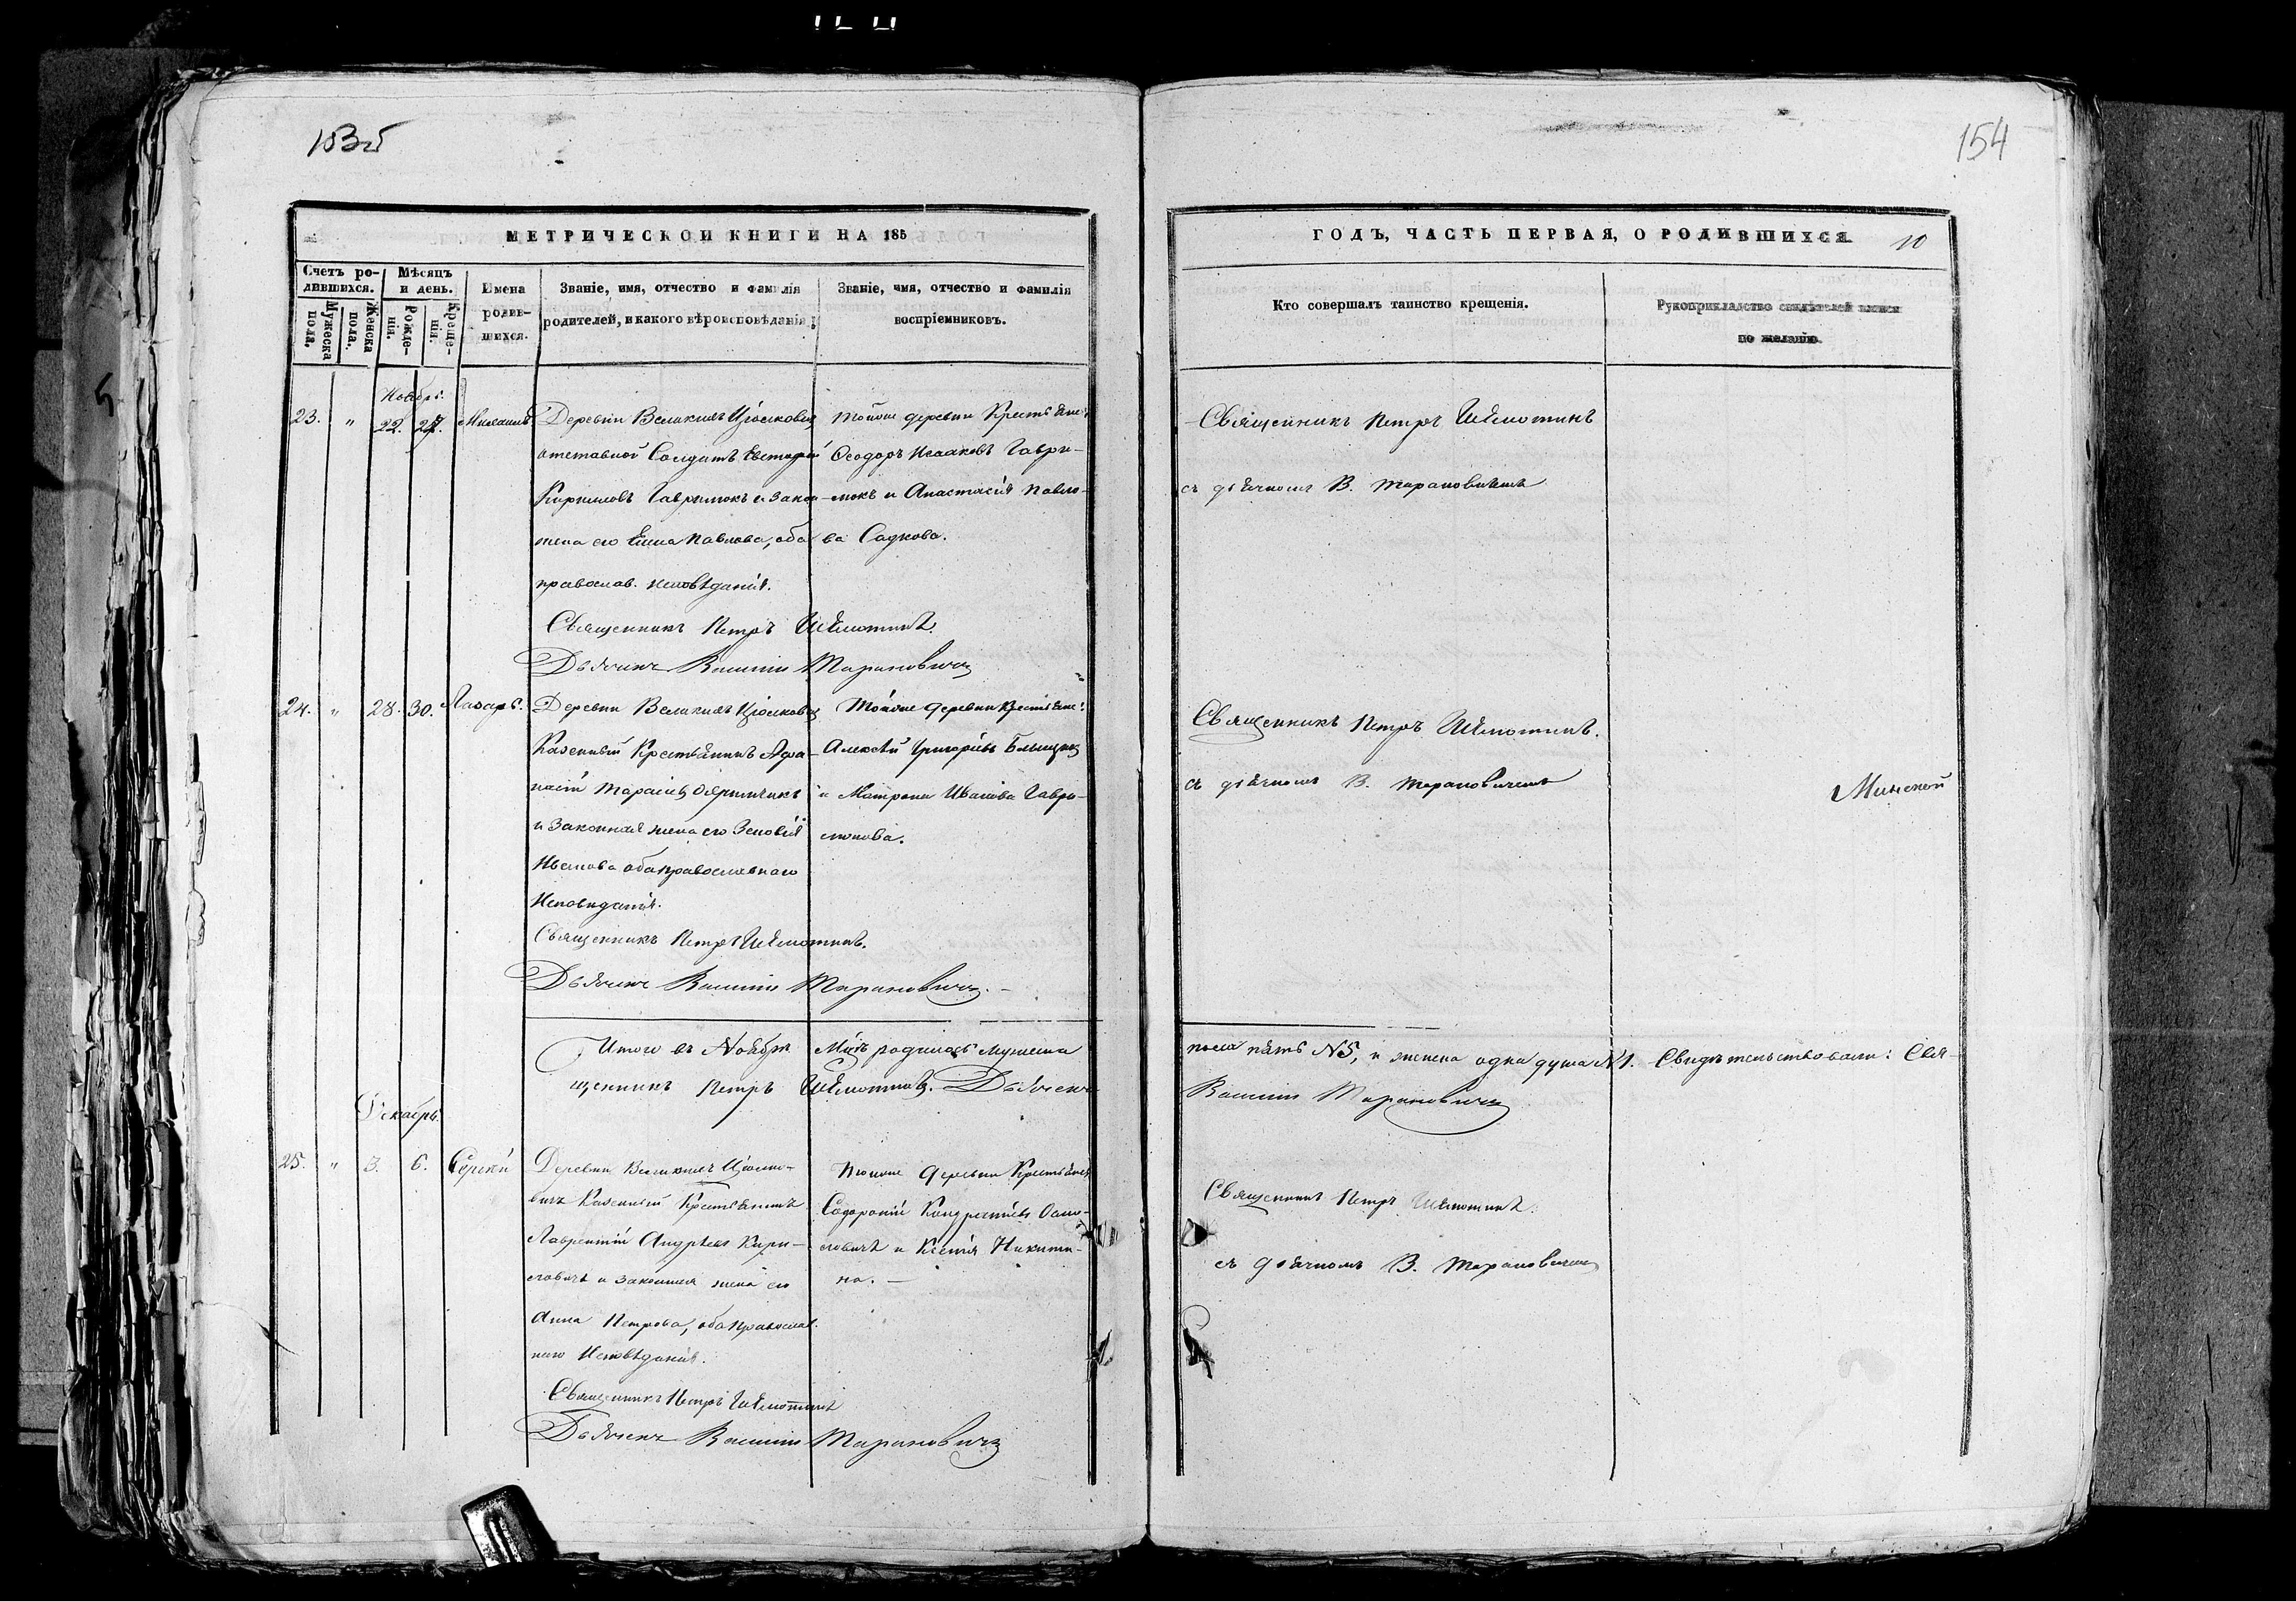 154
МЕТРИЧЕСКОЙ КНИГИ НА 185
ГОДЪ, ЧАСТЬ ПЕРВАЯ, О РОДИВШИХСЯ.
10
Счетъ ро-
дившихся.
Мужеска
пола.
Женска
пола.
Мѣсяцъ
и день.
Рожде-
нія.
Креще-
нія.
Имена
родив-
шихся.
Званіе, имя, отчество и фамилія
родителей, и какого вѣроисповѣданія.
Званіе, имя, отчество и фамилія
воспріемниковъ.
Кто совершалъ таинство крещенія.
Рукоприкладство свидѣтелей записи
по желанію.
Ноябрь.
23. " 22. 27. Михаилъ
Деревни Великихъ
отставной Солдатъ
Кириловъ Гаврилюкъ и закон-
жена его Елена Павлова, оба
православ. исповѣданія.
Священникъ Петръ
Дьячекъ Василій Тарановичъ
Тойже деревни Крестьяне:
Ѳеодоръ Исааковъ Гаври-
люкъ и Анастасія Павло-
ва Садкова.
Священникъ Петръ
съ дьячкомъ В. Тарановичемъ
24. " 28. 30. Лазарь.
Деревни Великихъ
Казенный Крестьянинъ Афа-
насій Тарасіевъ
и законная жена его Зеновія
Иванова оба православнаго
Исповѣданія.
Священникъ Петръ
Дьячекъ Василій Тарановичъ.
Тойже деревни Крестьяне:
Алексѣй Григорьевъ
и Матрона Иванова Гаври-
люкова.
Священникъ Петръ
съ дьячкомъ В. Тарановичемъ
Минской
Итого въ Ноябрѣ М-цѣ родилось мужеска
пола пять №5, и женска одна душа №1. Свидѣтельствовали: Свя-
щенникъ Петръ Дьячекъ
Василій Тарановичъ
Декабрь.
25. " 3. 6. Сергѣй
Деревни Великихъ
Казенный Крестьянинъ
Лаврентій Андреевъ Кири-
ловичъ и законная жена его
Анна Петрова, оба православ-
наго Исповѣданія.
Священникъ Петръ
Дьячекъ Василій Тарановичъ
Тойже деревни Крестьяне
Кондратьевъ
и Ксенія Никити-
на.
Священникъ Петръ
съ дьячкомъ В. Тарановичемъ